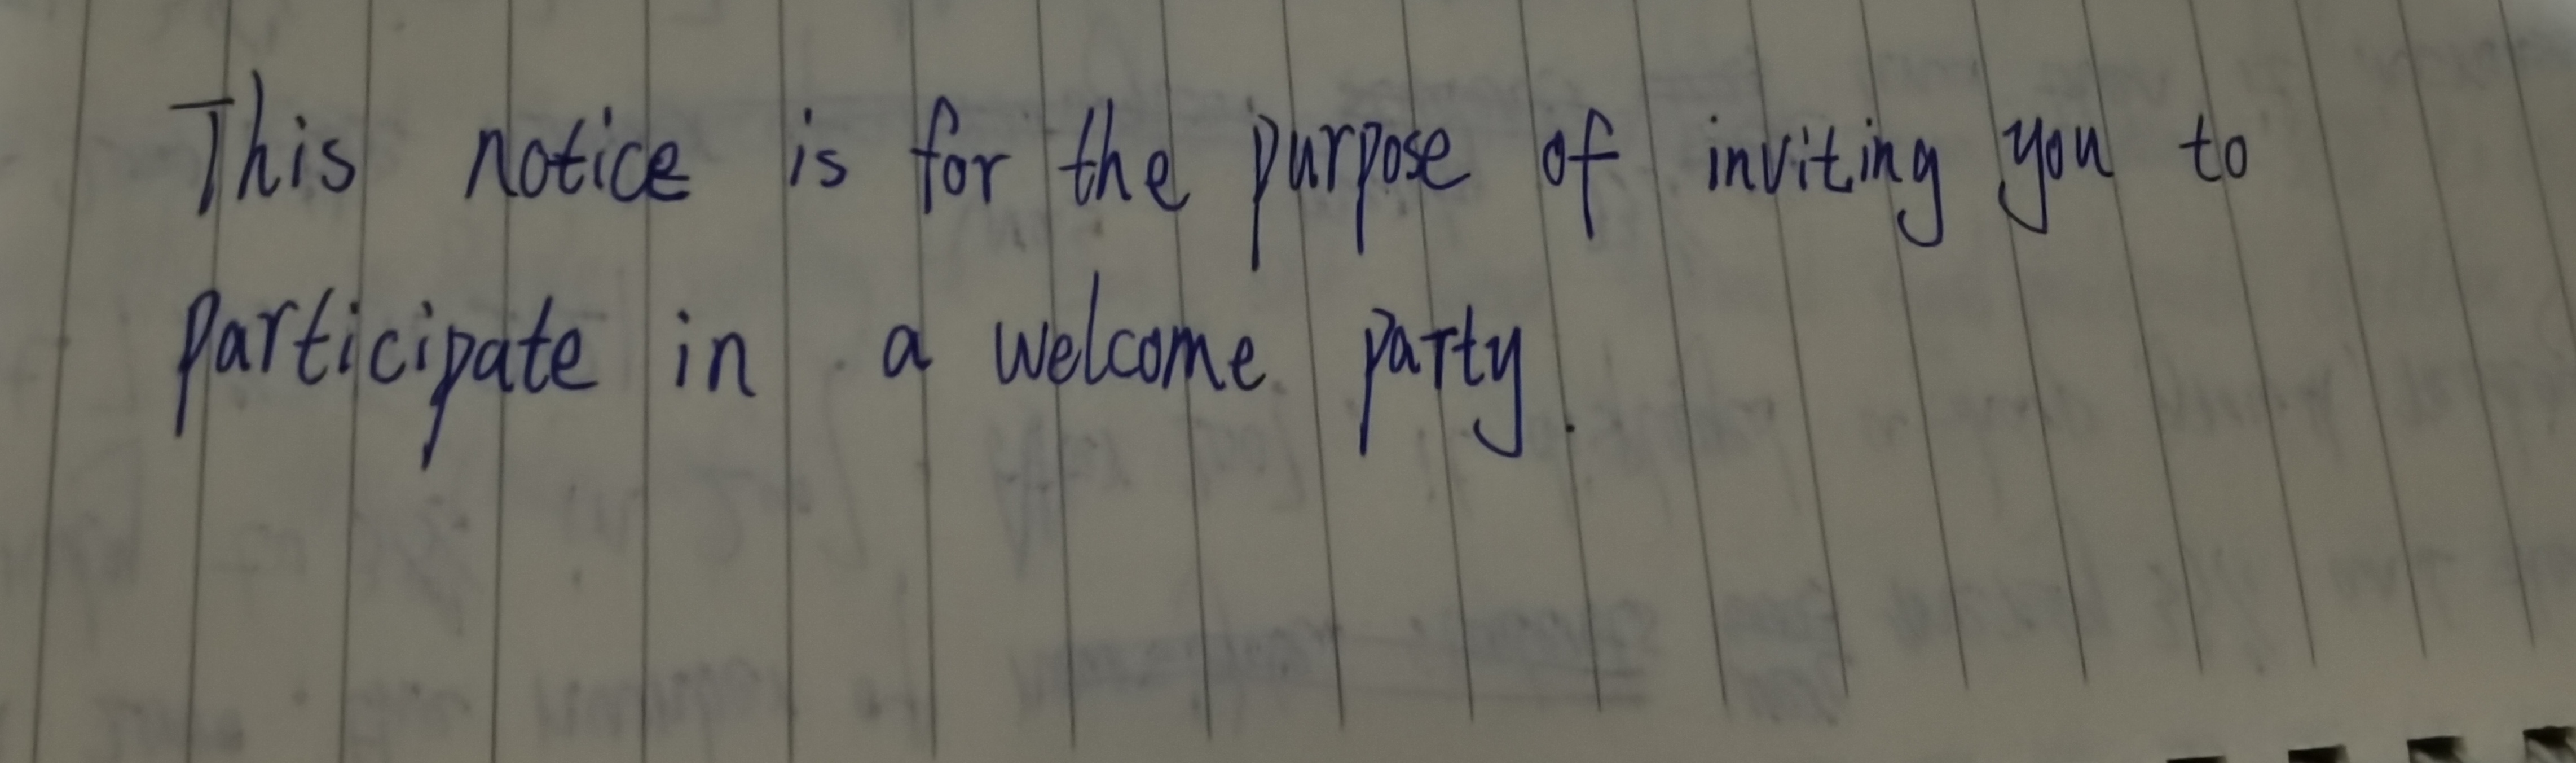 This notice is for the purpose of inviting you to
participate in a welcome party.